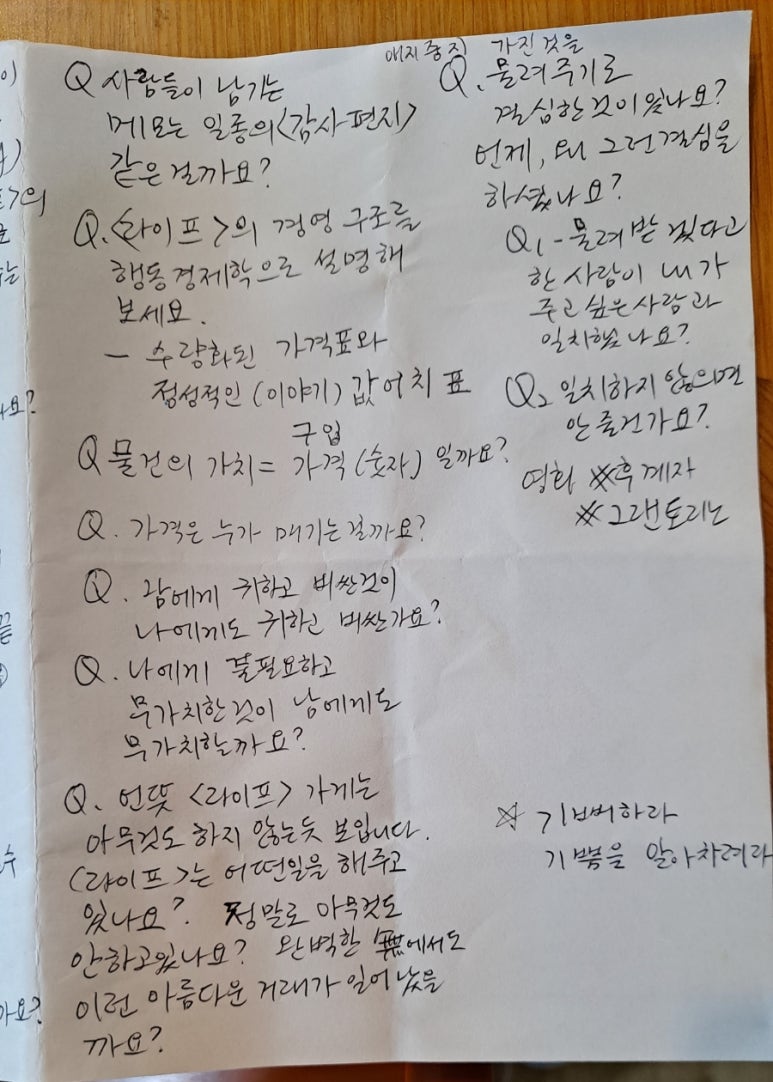 Q 사람들이 남기는
메모는 일종의 <감사편지>
같은 걸까요?
Q. <라이프>의 경영 구조를
행동경제학으로 설명해
보세요.
- 수량화된 가격표와
정성적인 (이야기) 값어치 표
구입
Q 물건의 가치 = 가격 (숫자) 일까요?
Q. 가격은 누가 매기는걸까요?
Q. 남에게 귀하고 비싼것이
나에게도 귀하고 비싼가요?
Q. 나에게 불필요하고
무가치한것이 남에게도
무가치할까요?
Q. 언뜻 <라이프> 가게는
아무것도 하지 않는듯 보입니다.
<라이프>는 어떤일을 해주고
있나요? 정말로 아무것도
안하고있나요? 완벽한 無에서도
이런 아름다운 거래가 일어났을
까요?
애지중지 가진것을
Q. 물려주기로
결심한것이 있나요?
언제, 왜 그런결심을
하셨나요?
Q1 - 물려받겠다고
한 사람이 내가
주고싶은사람과
일치했나요?
Q2 일치하지 않으면
안 줄건가요?
영화 ※후계자
※그랜토리노
☆ 기뻐하라
기쁨을 알아차려라
이)
의
는
요?
끝
수
가요?